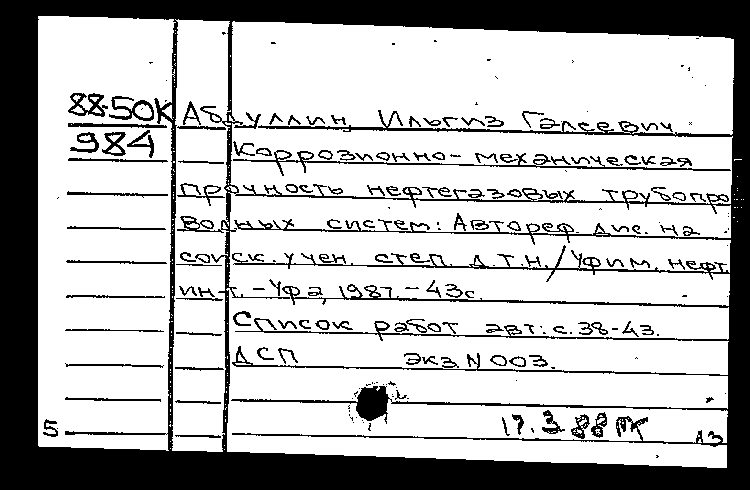 88-50К Абдуллин, Ильгиз Галеевич
984 Коррозионно-механическая
прочность нефтегазовых трубопро
водных систем: Автореф. дис. на
соиск. учен. степ. д.т.н./Уфим. нефт.
ин-т. - Уфа, 1987. - 43с.
Список работ авт: с. 38-43.
ДСП экз. N 003.
17.3.88
5